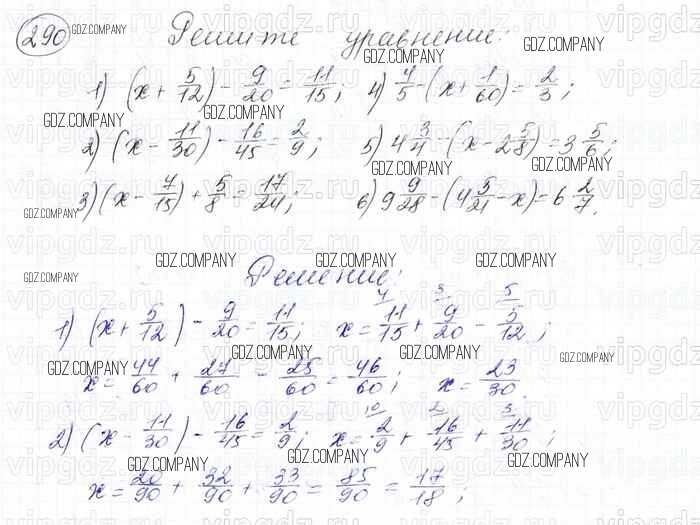 290 GDZ.COMPANY Решите уравнение: GDZ.COMPANY
1) (x + 5/12) - 9/20 = 11/15; 4) 4/5 - (x + 1/60) = 2/3;
GDZ.COMPANY GDZ.COMPANY GDZ.COMPANY
2) (x - 11/30) - 16/45 = 2/9; 5) 4 3/4 - (x - 2 5/8) = 3 5/6;
GDZ.COMPANY GDZ.COMPANY GDZ.COMPANY
3) (x - 7/15) + 5/8 = 17/24; 6) 9 9/28 - (4 5/21 - x) = 6 2/7.
GDZ.COMPANY
GDZ.COMPANY GDZ.COMPANY GDZ.COMPANY
GDZ.COMPANY Решение:
1) (x + 5/12) - 9/20 = 11/15; x = 11/15 + 9/20 - 5/12;
GDZ.COMPANY GDZ.COMPANY GDZ.COMPANY GDZ.COMPANY
x = 44/60 + 27/60 - 25/60 = 46/60; x = 23/30.
2) (x - 11/30) - 16/45 = 2/9; x = 2/9 + 16/45 + 11/30;
GDZ.COMPANY GDZ.COMPANY GDZ.COMPANY
x = 20/90 + 32/90 + 33/90 = 85/90 = 17/18;